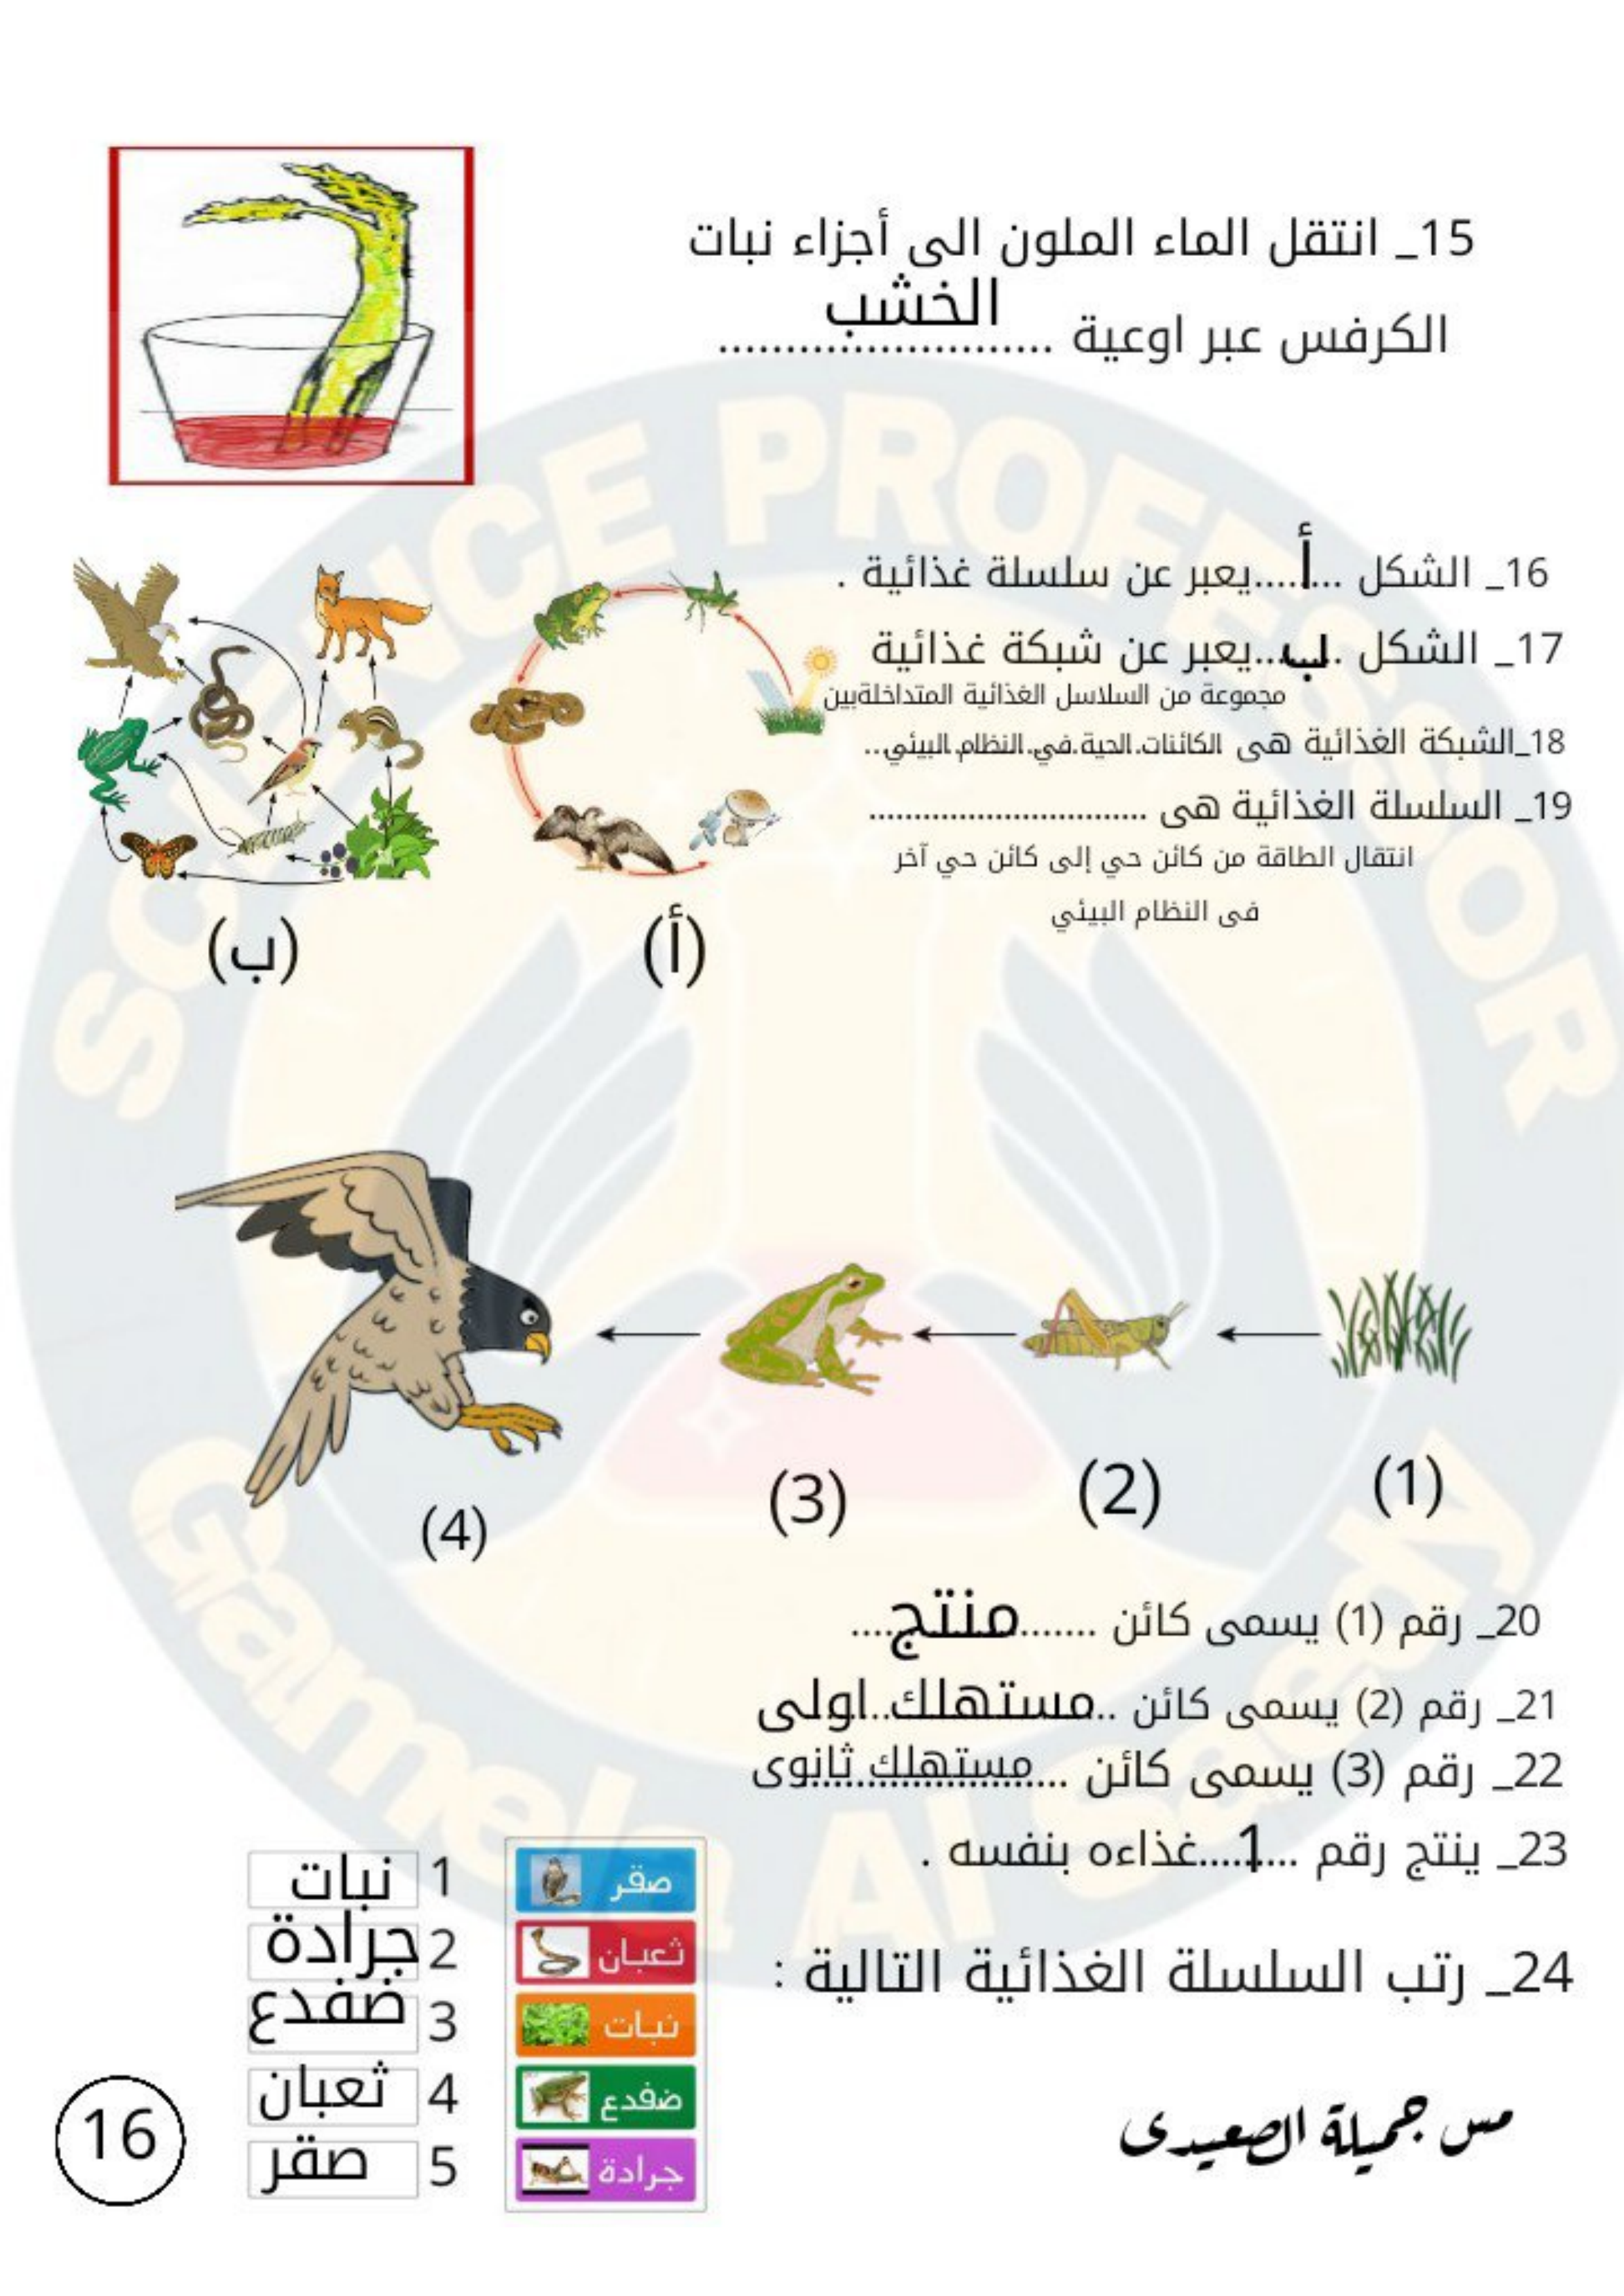 15_ انتقل الماء الملون الى أجزاء نبات
الكرفس عبر اوعية ......الخشب......
16_ الشكل ...أ...يعبر عن سلسلة غذائية .
17_ الشكل ...ب...يعبر عن شبكة غذائية
مجموعة من السلاسل الغذائية المتداخلةبين
18_الشبكة الغذائية هى الكائنات الحية في النظام البيئي..
19_ السلسلة الغذائية هى ..............................
انتقال الطاقة من كائن حي إلى كائن حي آخر
فى النظام البيئي
(أ)
(ب)
(1)
(2)
(3)
(4)
20_ رقم (1) يسمى كائن ......منتج......
21_ رقم (2) يسمى كائن ..مستهلك اولى
22_ رقم (3) يسمى كائن ...مستهلك ثانوى
23_ ينتج رقم ...1...غذاءه بنفسه .
24_ رتب السلسلة الغذائية التالية :
صقر
ثعبان
نبات
ضفدع
جرادة
1 نبات
2 جرادة
3 ضفدع
4 ثعبان
5 صقر
مس جميلة الصعيدى
16
SCIENCE PROFESSOR
Gamela Al Saedy